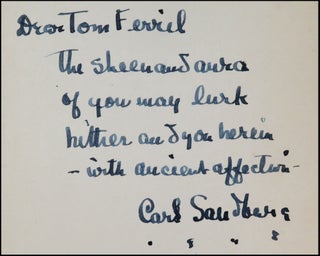 Dear Tom Ferril
The sheen and aura
of you may lurk
hither and yon herein
- with ancient affection -
Carl Sandburg